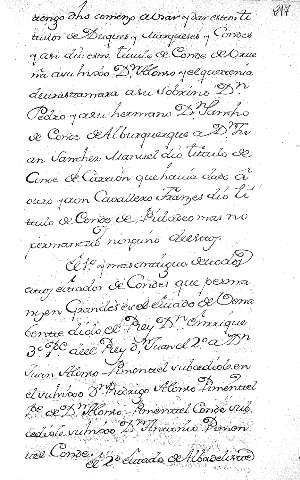 tengo dho comenzo a usar y dar estos ti
titulos de Duques y Marqueses y Condes
y asi dio este titulo de Conde de
na a su hixo Dn. Alonso y el
de trastamara a su Sobrino Dn
Pedro y a su hermano Dn. Sancho
de Conde de Alburquerque a Dn. Ju
an Sanchez Manuel dio titulo de
Conde de Carrion que havia dado a
otro y a un Cavallero Franzes dio ti
tulo de Conde de Ribadeo mas no
permanecio ninguno de estos
El 1º y mas antiguo de todos
estados de Condes que perma
nezen Grandes es el estado de Bena
bente diole el Rey Dn. Enrrique
3º Pe. del Rey D. Juan el 2º a Dn
Juan Alonso Pimentel subcediole en
el su hixo Dn. Rodrigo Alonso Pimentel
Pe. de Dn. Alonso Pimentel Conde sub
cediole su hixo Dn. Antonio Pimen
tel Conde.
el 2º estado de Alba de liste